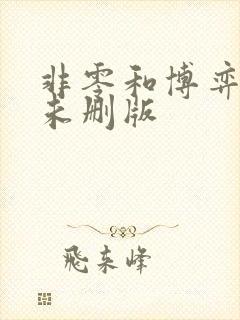 非零和博弈
未删版
飛来峰